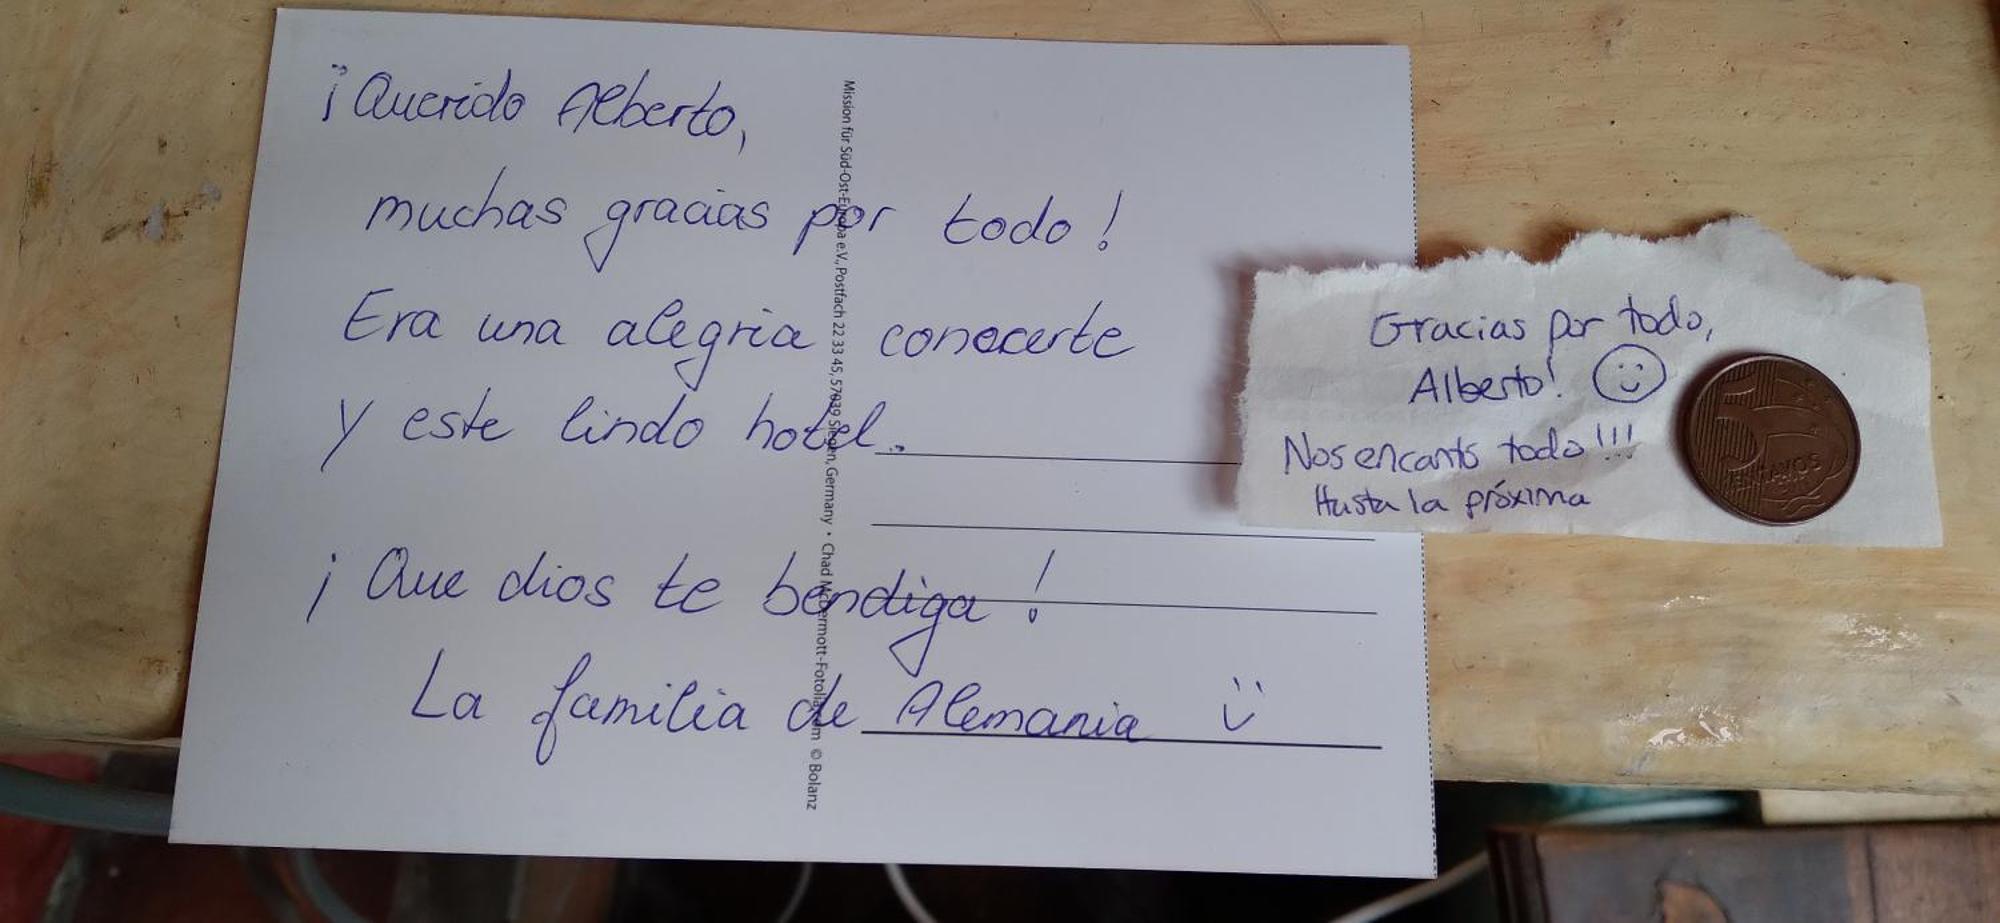 ¡Querido Alberto,
muchas gracias por todo!
Era una alegria conocerte
y este lindo hotel.
¡Que dios te bendiga!
La familia de Alemania
Mission für Süd-Ost-Europa e.V., Postfach 22 33 45, 57039 Siegen, Germany • Chad McDermott-Fotolia.com © Bolanz
Gracias por todo,
Alberto!
Nos encantó todo!!!
Hasta la próxima
5
CENTAVOS